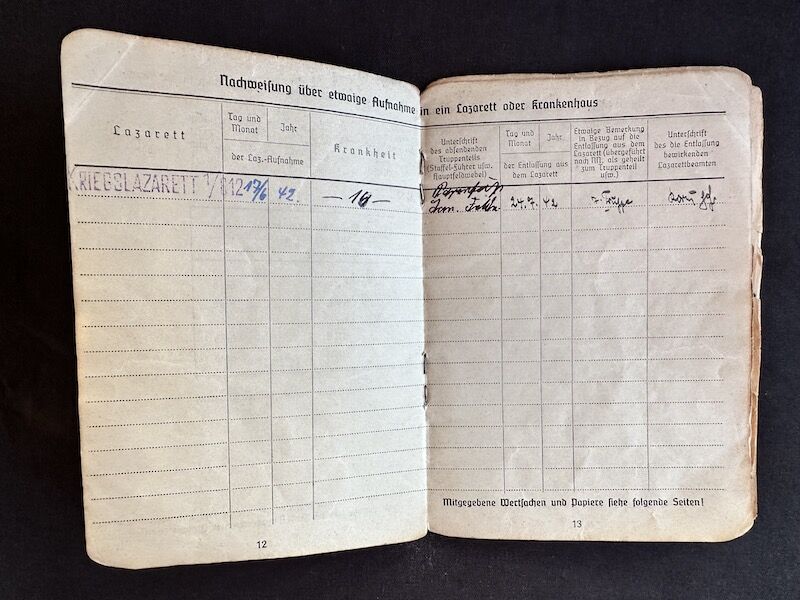 Nachweisung über etwaige Aufnahme in ein Lazarett oder Krankenhaus
Lazarett
Tag und Monat
Jahr
der Laz.-Aufnahme
Krankheit
KRIEGSLAZARETT 1/612
17/6
42.
— 16 —
12
Unterschrift
des absendenden
Truppenteils
(Staffel-Führer usw.
Hauptfeldwebel)
Tag und Monat
Jahr
der Entlassung aus
dem Lazarett
Etwaige Bemerkung
in Bezug auf die
Entlassung aus dem
Lazarett (übergeführt
nach NN; als geheilt
zum Truppenteil
usw.)
Unterschrift
des die Entlassung
bewirkenden
Lazarettbeamten
24.7.
42
z. Truppe
Mitgegebene Wertsachen und Papiere siehe folgende Seiten!
13